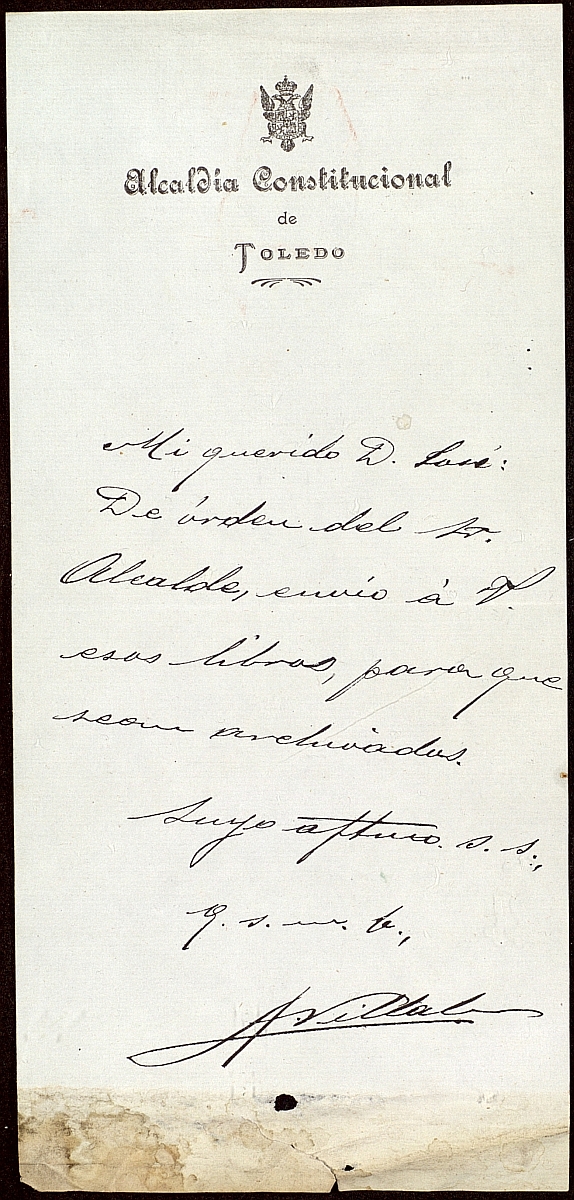 Alcaldía Constitucional
de
TOLEDO
Mi querido D. José:
De órden del sr.
Alcalde, envio á V.
esos libros, para que
sean archivados.
Suyo aftmo. s. s.,
q. s. m. b.,